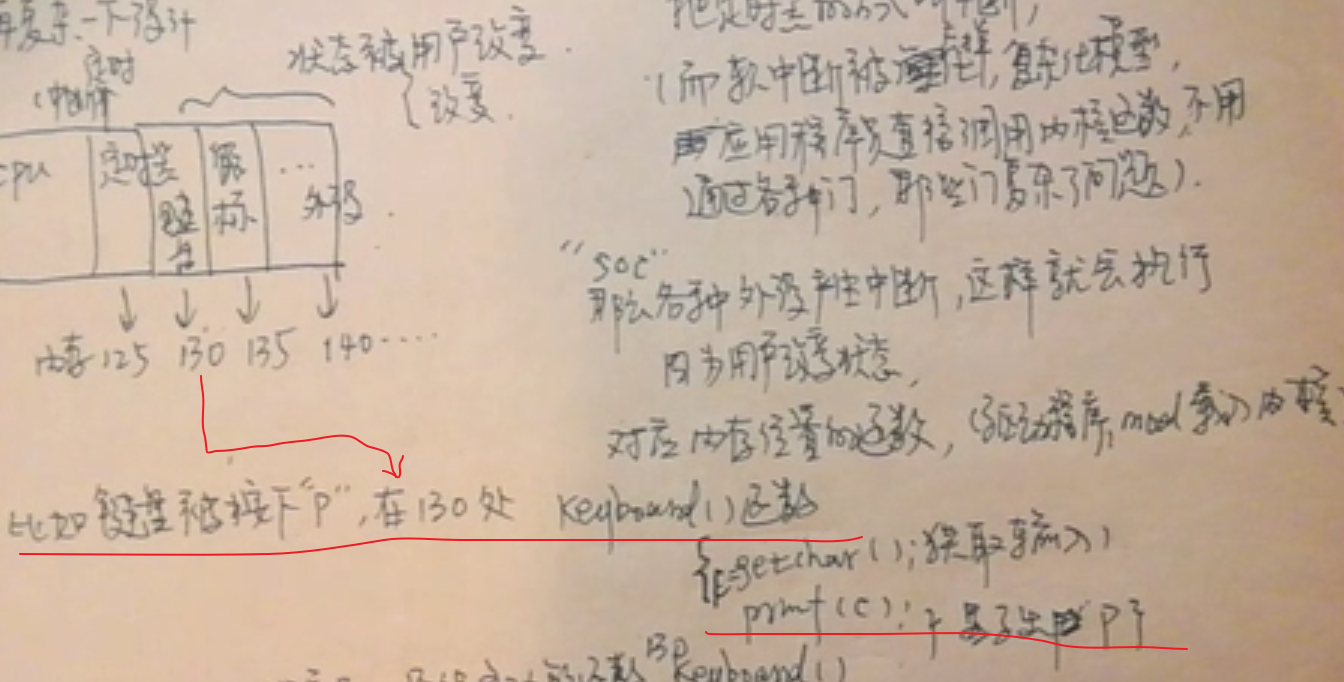 再复杂一下设计
定时
(中断
状态被用户改变.
改变.
CPU
定时器
键盘
鼠标
...
外设.
内存 125 130 135 140....
比如键盘被按下"P",在130处 keyboard()函数
{c=getchar();获取输入)
printf(c);} 显示出 P}
把定时器的方式叫中断,
(而软中断被,复杂化模型,
应用程序直接调用内核函数,不用
通过各种门,那些门复杂了问题).
"soc"
那么各种外设产生中断,这样就会执行
因为用户改变状态,
对应内存位置的函数,(驱动程序,mod载入内核
的函数 130 keyboard()